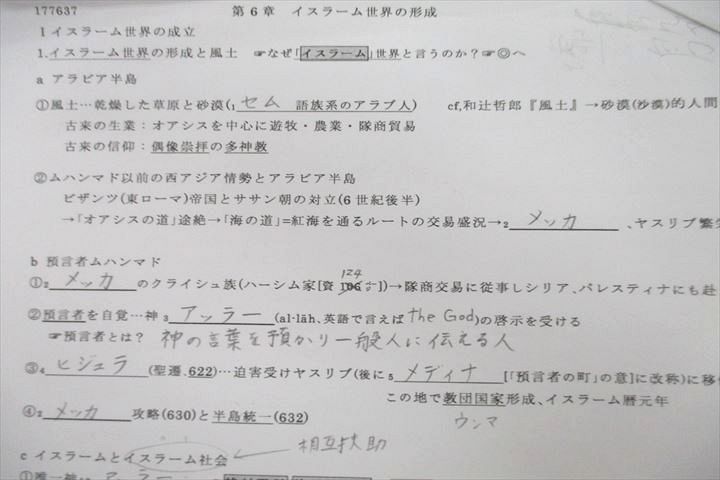 177637
第6章 イスラーム世界の形成
Ⅰイスラーム世界の成立
1.イスラーム世界の形成と風土 ☞なぜ「イスラーム」世界と言うのか?☞◎へ
a アラビア半島
①風土…乾燥した草原と砂漠(₁セム 語族系のアラブ人) cf,和辻哲郎『風土』→砂漠(沙漠)的人間
古来の生業:オアシスを中心に遊牧・農業・隊商貿易
古来の信仰:偶像崇拝の多神教
②ムハンマド以前の西アジア情勢とアラビア半島
ビザンツ(東ローマ)帝国とササン朝の対立(6世紀後半)
→「オアシスの道」途絶→「海の道」=紅海を通るルートの交易盛況→₂ メッカ 、ヤスリブ繁
b 預言者ムハンマド
124
①₂ メッカ のクライシュ族(ハーシム家[資 106 ])→隊商交易に従事しシリア、パレスティナにも赴
②預言者を自覚…神₃ アッラー (al-lāh、英語で言えばthe God)の啓示を受ける
☞預言者とは? 神の言葉を預かり一般人に伝える人
③₄ ヒジュラ (聖遷、622)…迫害受けヤスリブ(後に₅ メディナ [「預言者の町」の意]に改称)に移
この地で教団国家形成、イスラーム暦元年
ウンマ
④₂ メッカ 攻略(630)と半島統一(632)
相互扶助
c イスラームとイスラーム社会